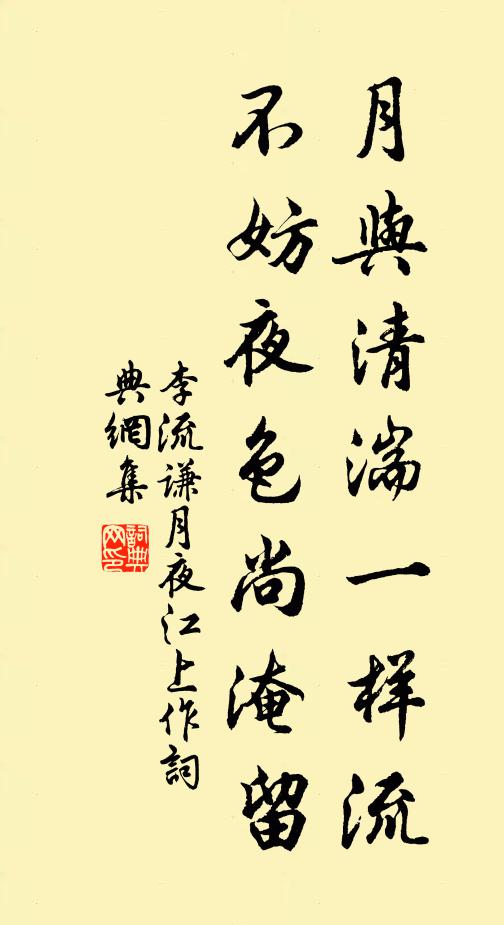 月與清湍一样流
不妨夜色尚淹留
李流谦月夜江上作詞
典網集
詞典
网印